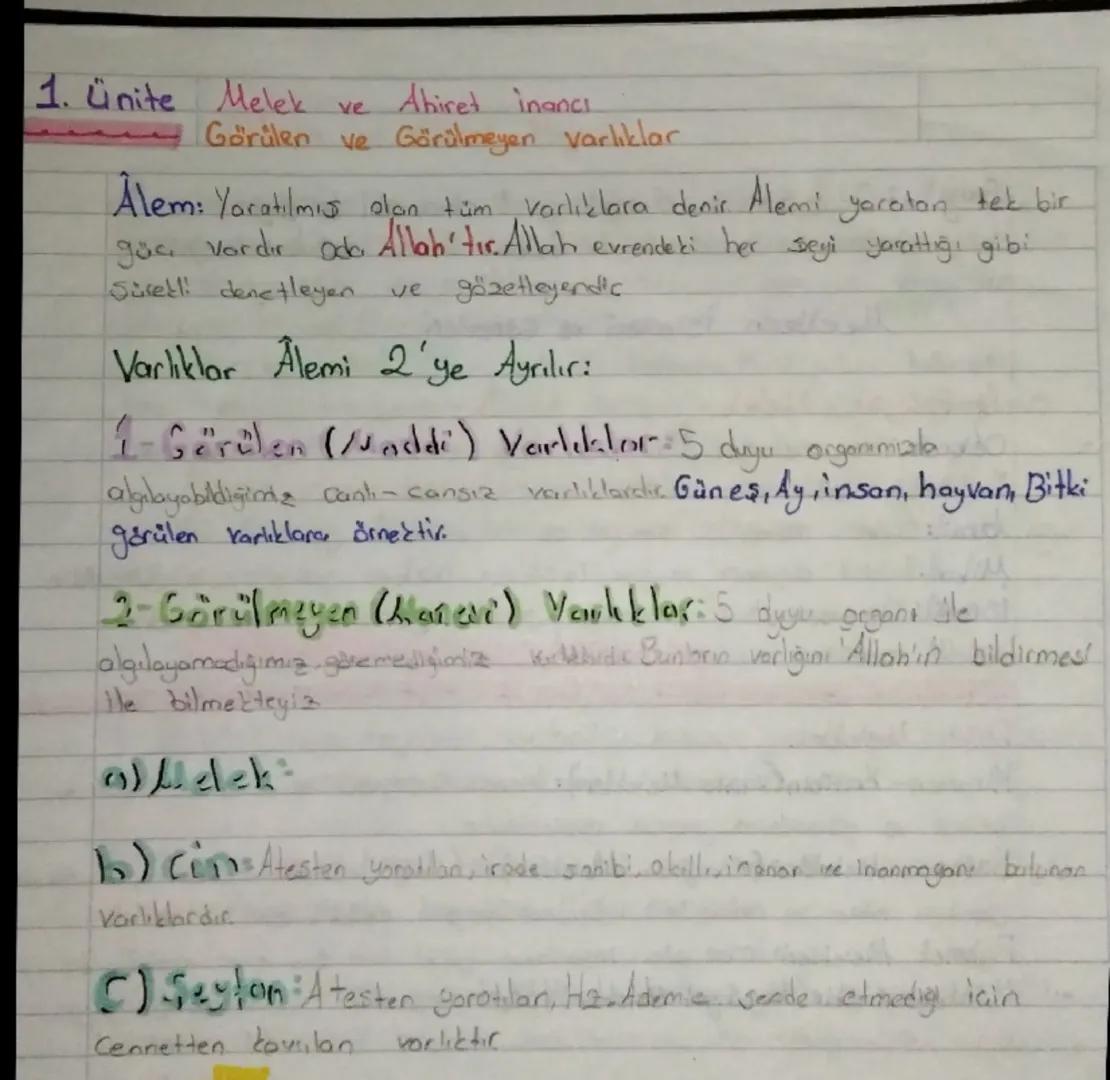 1. Ünite Melek ve Ahiret inancı
Görülen ve Görülmeyen varlıklar
Âlem: Yaratılmış olan tüm varlıklara denir Alemi yaratan tek bir
güç vardır oda Allah'tır. Allah evrendeki her şeyi yarattığı gibi
Sürekli denetleyen ve gözetleyendir
Varlıklar Âlemi 2'ye Ayrılır:
1-Görülen (Maddi) Varlıklar: 5 duyu organımızla
algılayabildiğimiz canlı-cansız varlıklardır. Güneş, Ay, insan, hayvan, Bitki
görülen varlıklara örnektir.
2-Görülmeyen (Manevi) Varlıklar: 5 duyu organı ile
algılayamadığımız, göremediğimiz Bunların varlığını Allah'ın bildirmesi
ile bilmekteyiz
a) Melek:
b) Cin: Atesten yaratılan, irade sahibi, akıllı, inanan ve inanmayanı bulunan
varlıklardır
C) Şeytan: Atesten yaratılan, Hz. Adem'e secde etmediği için
Cennetten kovulan varlıktır